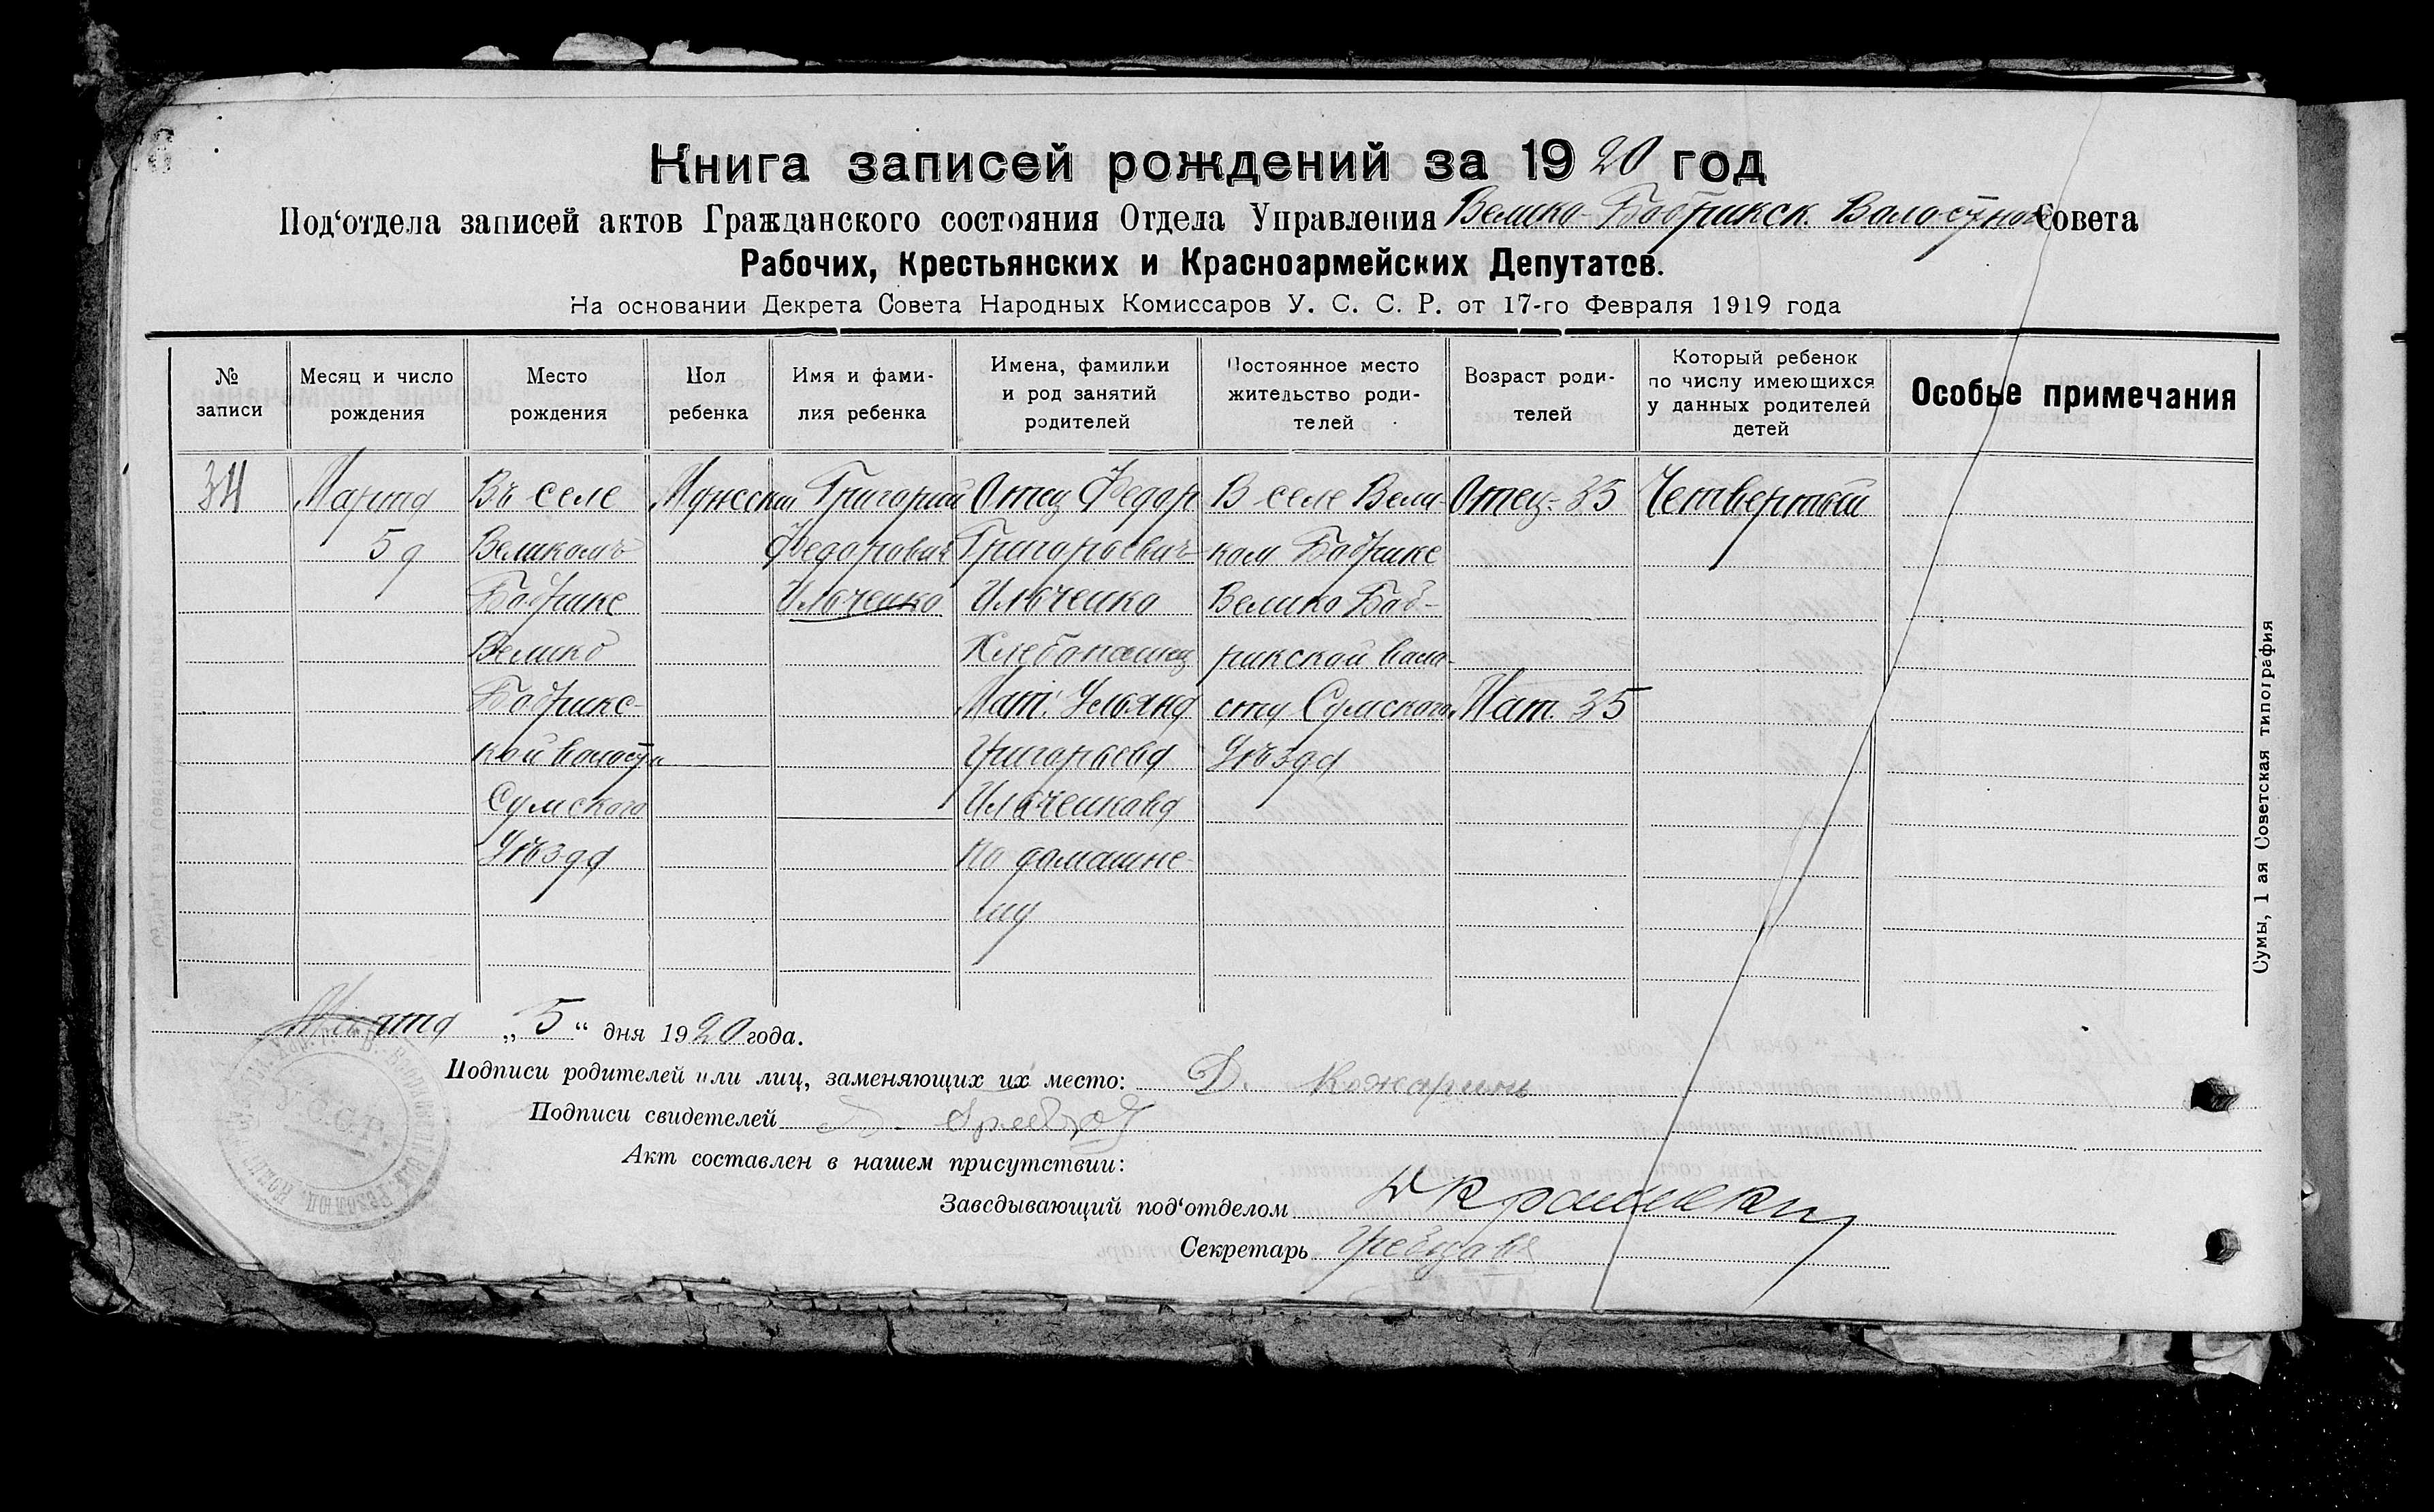 Книга записей рождений за 1920 год
Под‘отдела записей актов Гражданского состояния Отдела Управления Велико-Бобрикск. Волостного Совета
Рабочих, Крестьянских и Красноармейских Депутатов.
На основании Декрета Совета Народных Комиссаров У. С. С. Р. от 17-го Февраля 1919 года
№ записи
Месяц и число рождения
Место рождения
Пол ребенка
Имя и фами-
лия ребенка
Имена, фамилии
и род занятий
родителей
Постоянное место
жительство роди-
телей
Возраст роди-
телей
Который ребенок
по числу имеющихся
у данных родителей
детей
Особые примечания
34
Марта
5 д
Въ селе
Великомъ
Бобрике
Велико
Бобрикс-
кой волости
Сумского
Уѣзда
Мужской
Григорий
Федорович
Ильченко
Отец Федор
Григорьевич
Ильченко
Хлебопашец
Мат. Ульяна
Григорьева
Ильченкова
по домашне-
му
В селе Вели-
ком Бобрике
Велико Боб-
рикской воло-
сти Сумского
Уѣзда
Отец- 35
Мат. 35
Четвертый
Марта „5“ дня 1920 года.
Подписи родителей или лиц, заменяющих их место: Д.
Подписи свидетелей
Акт составлен в нашем присутствии:
Заведывающий под‘отделом
Секретарь
Сумы, 1 ая Советская типография
У.С.С.Р.